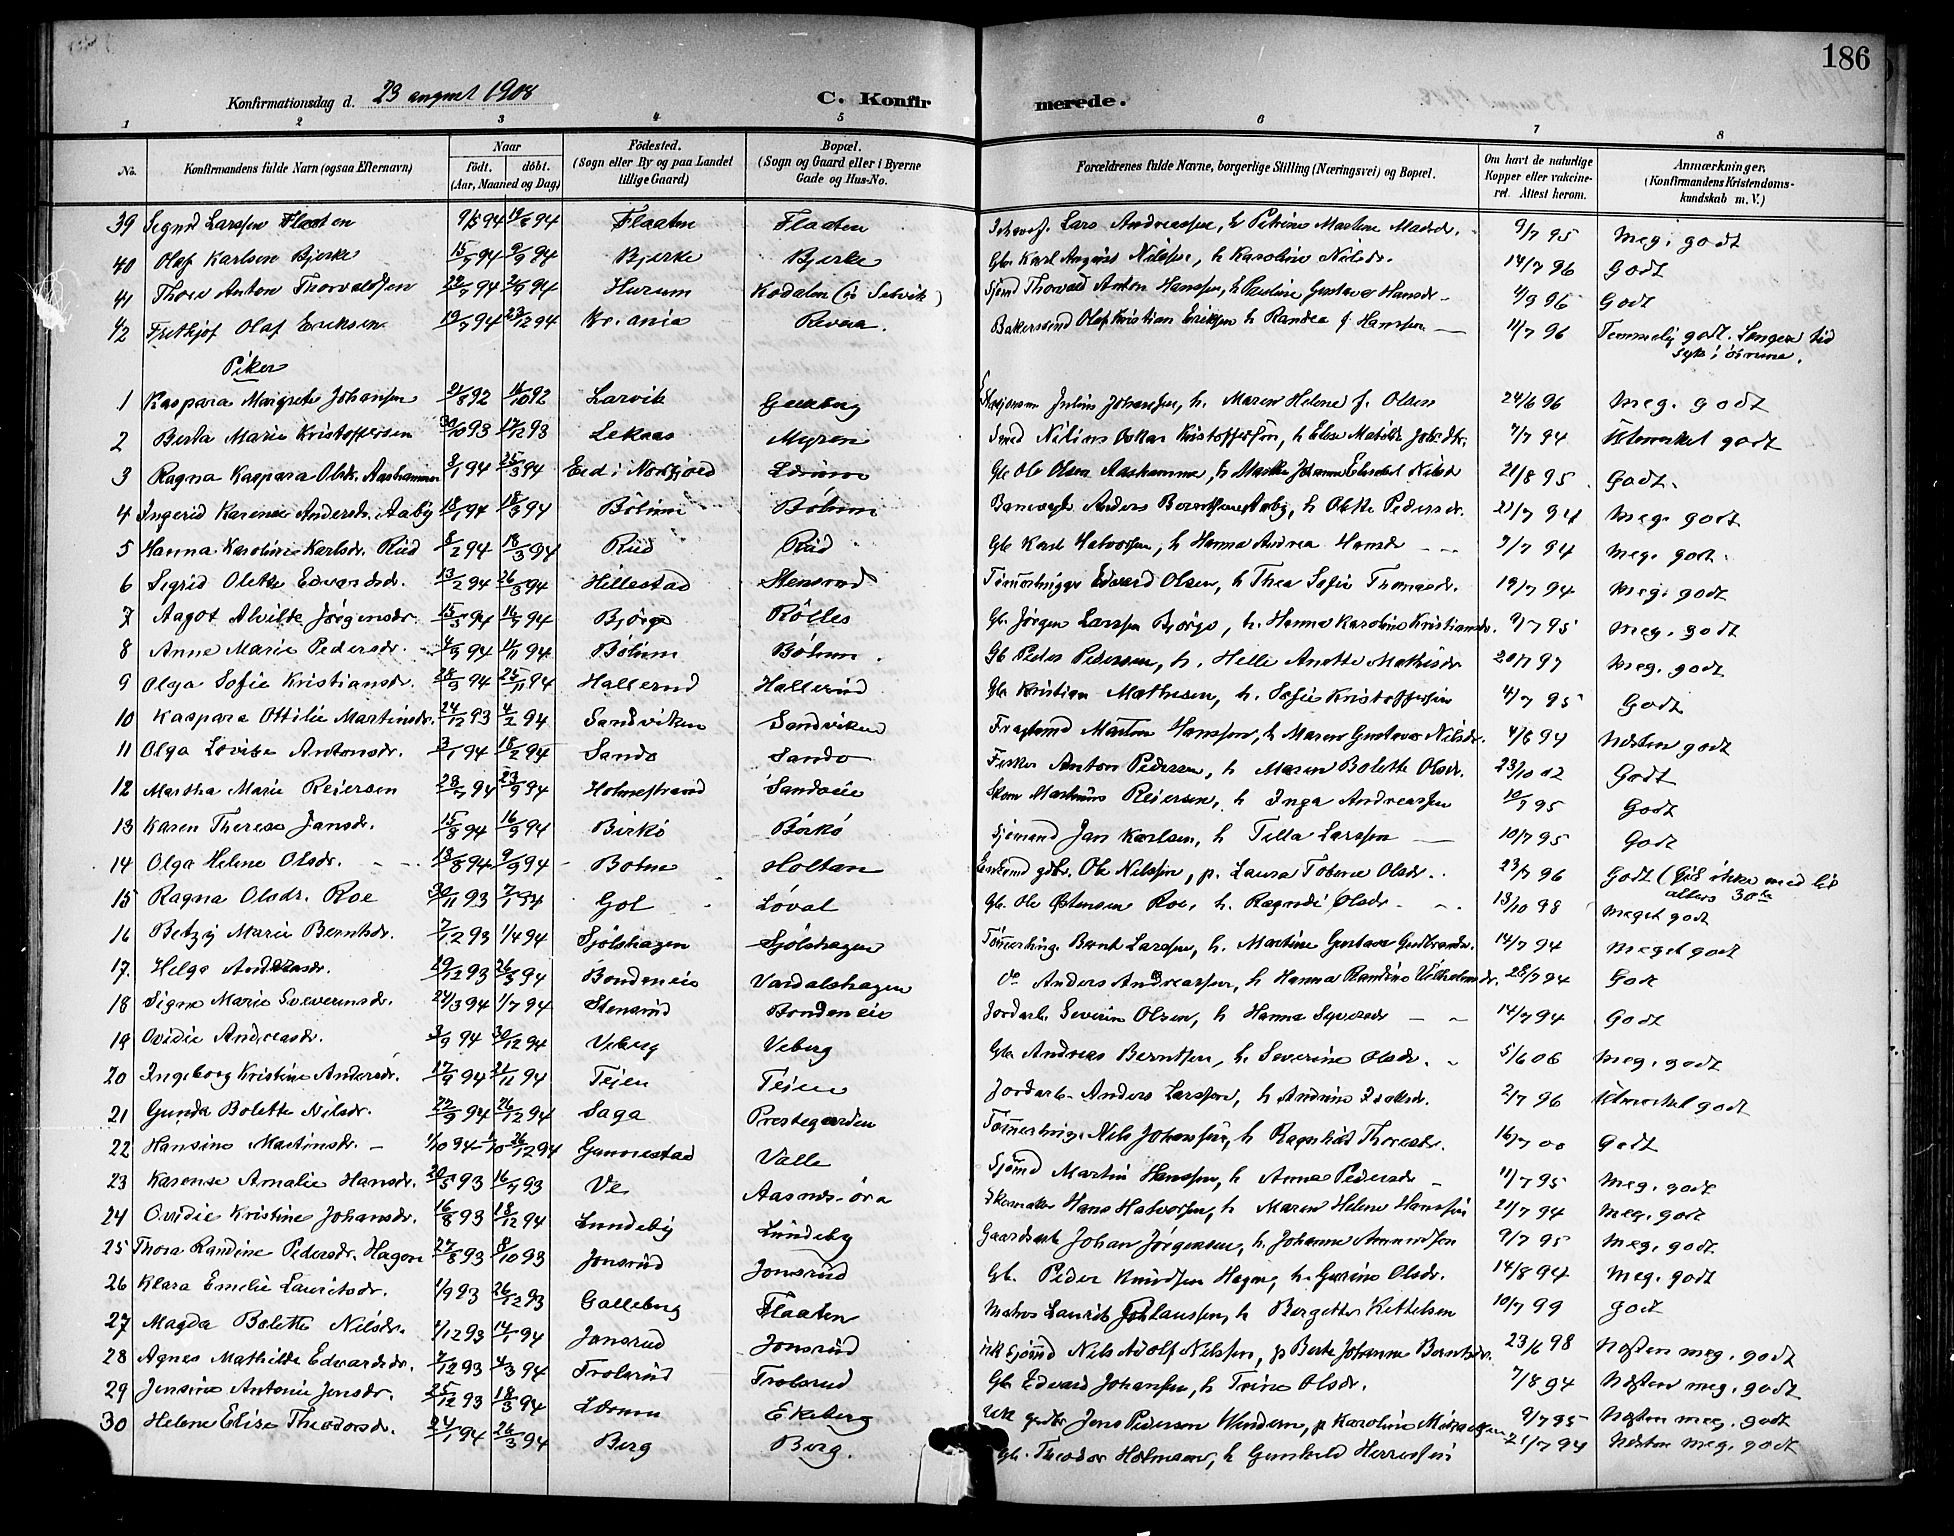 186
Konfirmationsdag d. 23 august 1908 C. Konfirmerede.
1 2 3 4 5 6 7 8
No. Konfirmandens fulde Navn (ogsaa Efternavn) Naar født. døbt. (Aar, Maaned og Dag) Fødested. (Sogn eller By og paa Landet tillige Gaard) Bopæl. (Sogn og Gaard eller i Byerne Gade og Hus-No. Forældrenes fulde Navne, borgerlige Stilling (Næringsvei) og Bopæl. Om havt de naturlige Kopper eller vakcineret. Attest herom. Anmærkninger. (Konfirmandens Kristendomskundskab m. V.)
39 Sigurd Larssen Flaaten 9/5 94 Flaaten Flaaten Lars Andreassen, h Petrine Martine Madsdr. 9/7 95 Meg. godt
40 Olaf Karlsen Bjerke 15/5 94 9/9 94 Bjerke Bjerke Gbr. Karl August Nilssen, h Karoline Nilsdr. 14/7 96 Godt
41 Thore Anton Thorvaldsen 94 94 Hurum Kodalen (i Selvik) Sjømd Thorvald Anton Hanssen, h Pauline Gustava Hansdr 4/9 96 Godt
42 Fritkjof Olaf Eriksen 19/7 94 29/12 94 Kr.ania Revaa. Bakersvend Olaf Kristian Eriksen h Randea f Hanssen 11/7 96 Temmelig godt. Længere tid syk i ørerne.
Piker
1 Kaspara Margrete Johansen 21/8 92 16/10 92 Larvik Julius Johanssen, h. Maren Helene f. Olsen 24/6 96 Meg. godt
2 Berta Marie Kristoffersen 30/10 93 17/12 93 Lekaas Myren Smed Nilius Oskar Kristoffersen, h Elise Matilde 7/7 94 Utmerket godt
3 Ragna Kaspara Olsdr. Aashammer 2/1 94 25/3 94 Eid i Nordfjord Gb Ole Olsen Aashammer, h Marthe Johanne Nilsd 21/8 95 Godt.
4 Ingerid Karense Andersdr. Aaby 18/1 94 18/3 94 Bøhum Bøhum Anders Berntsen Aaby, h Olette Pedersdr. 21/7 94 Meg. godt
5 Hanna Karoline Karlsdr. Rud 8/2 94 18/3 94 Rud Rud Gb Karl Halvorsen, h Hanna Andrea Hansdr 9/7 94 Meg. godt.
6 Sigrid Olette Edvardsdr. 13/2 94 26/3 94 Hillestad Stensrud Tømmerhugger Edvard Olsen, h Thea Sofie Tromasdr. 19/7 94 Meg. godt
7 Aagot Alvilde Jørgensdr. 15/3 94 94 Bjørge Rølles Gb. Jørgen Larssen Bjørge, h. Hanna Karoline Kristiansdr. 9/7 95 Meg. godt
8 Anne Marie Pedersdr. 4/9 94 1/11 94 Bøhum Bøhum Gb Peder Pedersen, h. Helle Anette Mathisdr 20/7 97 Meg. godt
9 Olga Sofie Kristiansdr. 28/9 94 25/11 94 Hallerud Hallerud Gb Kristian Mathisen, h. Sofie Kristoffersen 4/7 95 Godt
10 Kaspara Ottilie Martinsdr. 24/12 93 4/2 94 Sandviken Sandviken Martin Hanssen, h Maren Gustava Nilsdr. 4/6 94 Næsten godt
11 Olga Lovise Antonsdr. 3/1 94 18/2 94 Sando Sando Fisker Anton Pedersen, h Maren Bolette Olsdr. 23/10 02 Godt
12 Martha Marie Reiersen 23/7 94 23/9 94 Holmestrand Sandseie Skom Martinius Reiersen, h Inga Andreassen 10/7 95 Godt
13 Karen Therese Jansdr. 15/8 94 16/9 94 Birkø Børkø Sjømand Jan Karlsen, h Tilla Larssen 10/7 95 Godt
14 Olga Helene Olsdr. 13/8 94 9/9 94 Botne Holtan Enkemd gbr. Ole Nilssen, p. Laura Tobine Olsdr. 23/7 96 Godt (Gik ikke med til alters 30te
15 Ragna Olsdr. Roe 30/11 93 7/1 94 Gol Løval Gb. Ole Østensen Roe, h. Ragndi Olsdr 13/10 98 Meget godt
16 Betzy Marie Berntsdr. 7/12 93 1/4 94 Sjølshagen Sjølshagen Tømmerhug. Bernt Larssen, h. Martine Gustava Gudbrandsdr. 14/7 94 Meget godt
17. Helga Andersdr. 19/12 93 26/3 94 Bondeneie Vardalshagen do Anders Andreassen, h Hanna Randine Vilhelmsdr. 28/7 94 Godt
18 Signe Marie Severinsdr. 24/3 94 1/7 94 Stensrud Bondeneie Jordarb. Severin Olsen, h Hanna Syversdr 14/7 94 Godt
19 Ovidie Andreasdr. 3/9 94 30/12 94 Veberg Veberg Gb. Andreas Berntsen, h. Severine Olsdr. 5/6 06 Meg. godt
20 Ingeborg Kristine Andersdr. 17/9 94 21/11 94 Teien Teien Jordarb. Anders Larssen, h Andrine Isaksdr. 2/7 96 Utmerket godt
21 Gunda Bolette Nilsdr. 22/9 94 26/12 94 Saga Prestegaarden Tømmerhug. Nils Johanssen, h Ragnhild Thoresdr. 16/7 00 Godt
22 Hansine Martinsdr. 1/10 94 26/12 94 Gunnestad Valle Sjømd Martin Hanssen, h Anne Pedersdr 11/7 95 Meg. godt
23 Karense Amalie Hansdr. 20/5 93 16/7 93 Ve Aasnes-øra Skomaker Hans Halvorsen, h Maren Helene Hanssen 21/7 94 Meg. godt
24 Ovidie Kristine Johansdr. 16/8 93 18/12 94 Lundeby Lundeby Gaardsarb Johan Jørgensen, h. Johanne Amundsen 9/7 95 Meg. godt
25 Thora Randine Pedersdr. Hagen 27/8 93 8/10 93 Jonsrud Jonsrud Gb. Peder Knudsen Hagen, h. Gurine Olsdr. 14/8 94 Meg. godt
26 Klara Emelie Lauritsdr. 1/9 93 26/12 93 Galleberg Flaaten Matros Laurits Johanssen, h Bergette Kittelsen 10/7 99 godt
27 Magda Bolette Nilsdr. 1/12 93 14/1 94 Jonsrud Jonsrud Sjømd Nils Adolf Nilssen, p Berte Johanne Berntsdr. 23/6 98 Næsten meg. godt
28 Agnes Mathilde Edvardsdr. 7/12 93 4/3 94 Trolsrud Trolsrud Gb. Edvard Johansen, h Trine Olsdr. 7/8 94 Næsten meg. godt
29 Jensine Antonie Jensdr. 25/12 93 18/3 94 Ekeberg Jens Pedersen p Karoline 9/7 95 Næsten meg. godt
30 Helene Elise Theodorsdr. 24/1 94 26/3 94 Berg Berg. Gb. Theodor h Gunhild 21/7 94 Næsten meg. godt